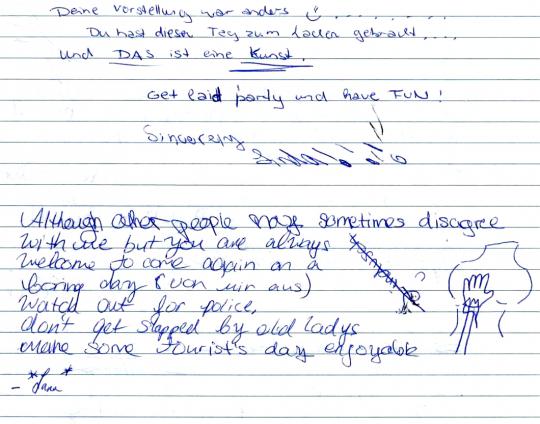 Deine Vorstellung war anders
Du hast diesen Tag zum Lachen gebracht....
und DAS ist eine Kunst.
Get laid party und have FUN!
Sincerely
Although other people may sometimes disagree
with me but you are always
welcome to come again on a
boring day (von mir aus)
Watch out for police,
don't get slapped by old ladys
make some tourist's day enjoyable